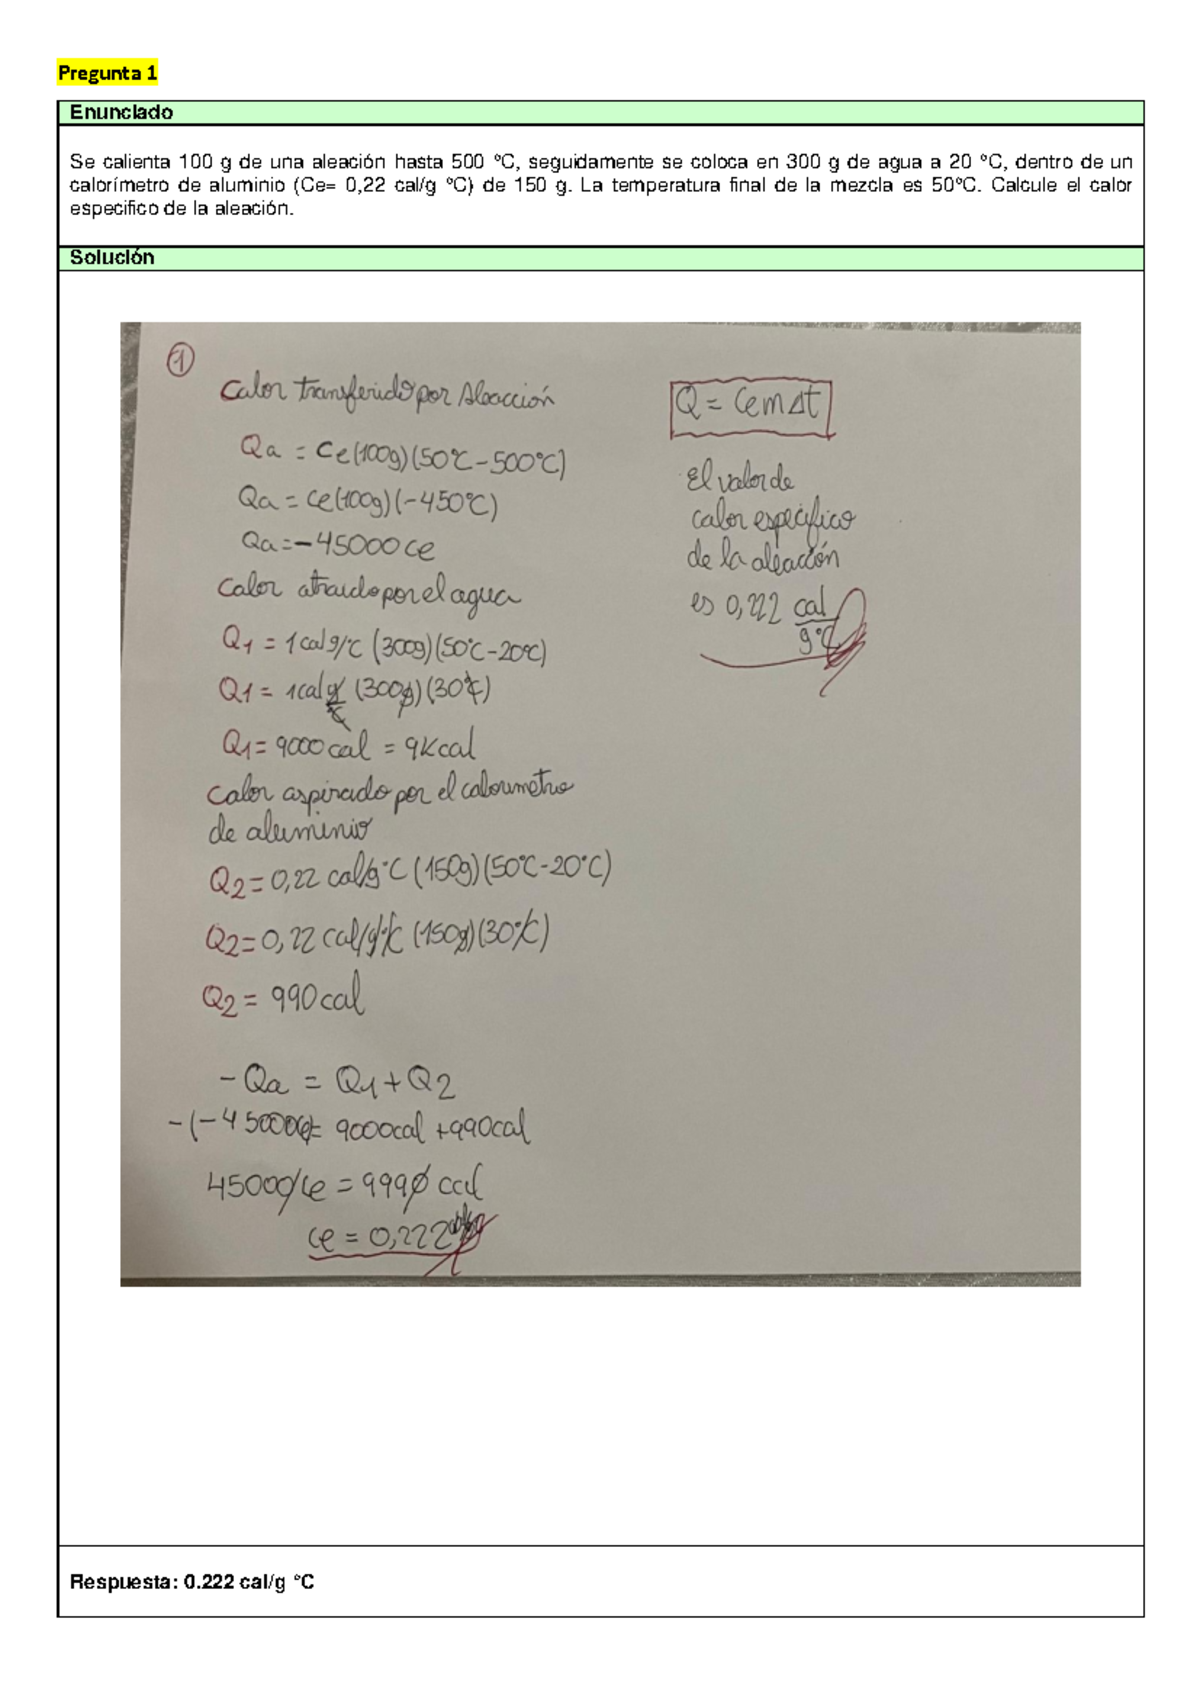 Pregunta 1
Enunciado
Se calienta 100 g de una aleación hasta 500 ºC, seguidamente se coloca en 300 g de agua a 20 ºC, dentro de un
calorímetro de aluminio (Ce= 0,22 cal/g ºC) de 150 g. La temperatura final de la mezcla es 50ºC. Calcule el calor
especifico de la aleación.
Solución
1
Calor transferido por Aleacción
Qa = Ce(100g)(50°C-500°C)
Qa = Ce(100g)(-450°C)
Qa=-45000 Ce
Calor atraido por el agua
Q1 = 1cal g/°C (300g)(50°C-20°C)
Q1 = 1cal g/°C (300g)(30°C)
Q1= 9000 cal = 9Kcal
Calor aspirado por el calorimetro
de aluminio
Q2= 0,22 cal/g°C (150g)(50°C-20°C)
Q2= 0,22 cal/g°C (150g)(30°C)
Q2 = 990 cal
-Qa = Q1+Q2
-(-45000Ce)= 9000cal +990cal
45000 Ce = 9990 cal
Ce = 0,222
Q = Ce m Δt
El valor de
calor especifico
de la aleacción
es 0,222 cal
g°C
Respuesta: 0.222 cal/g °C